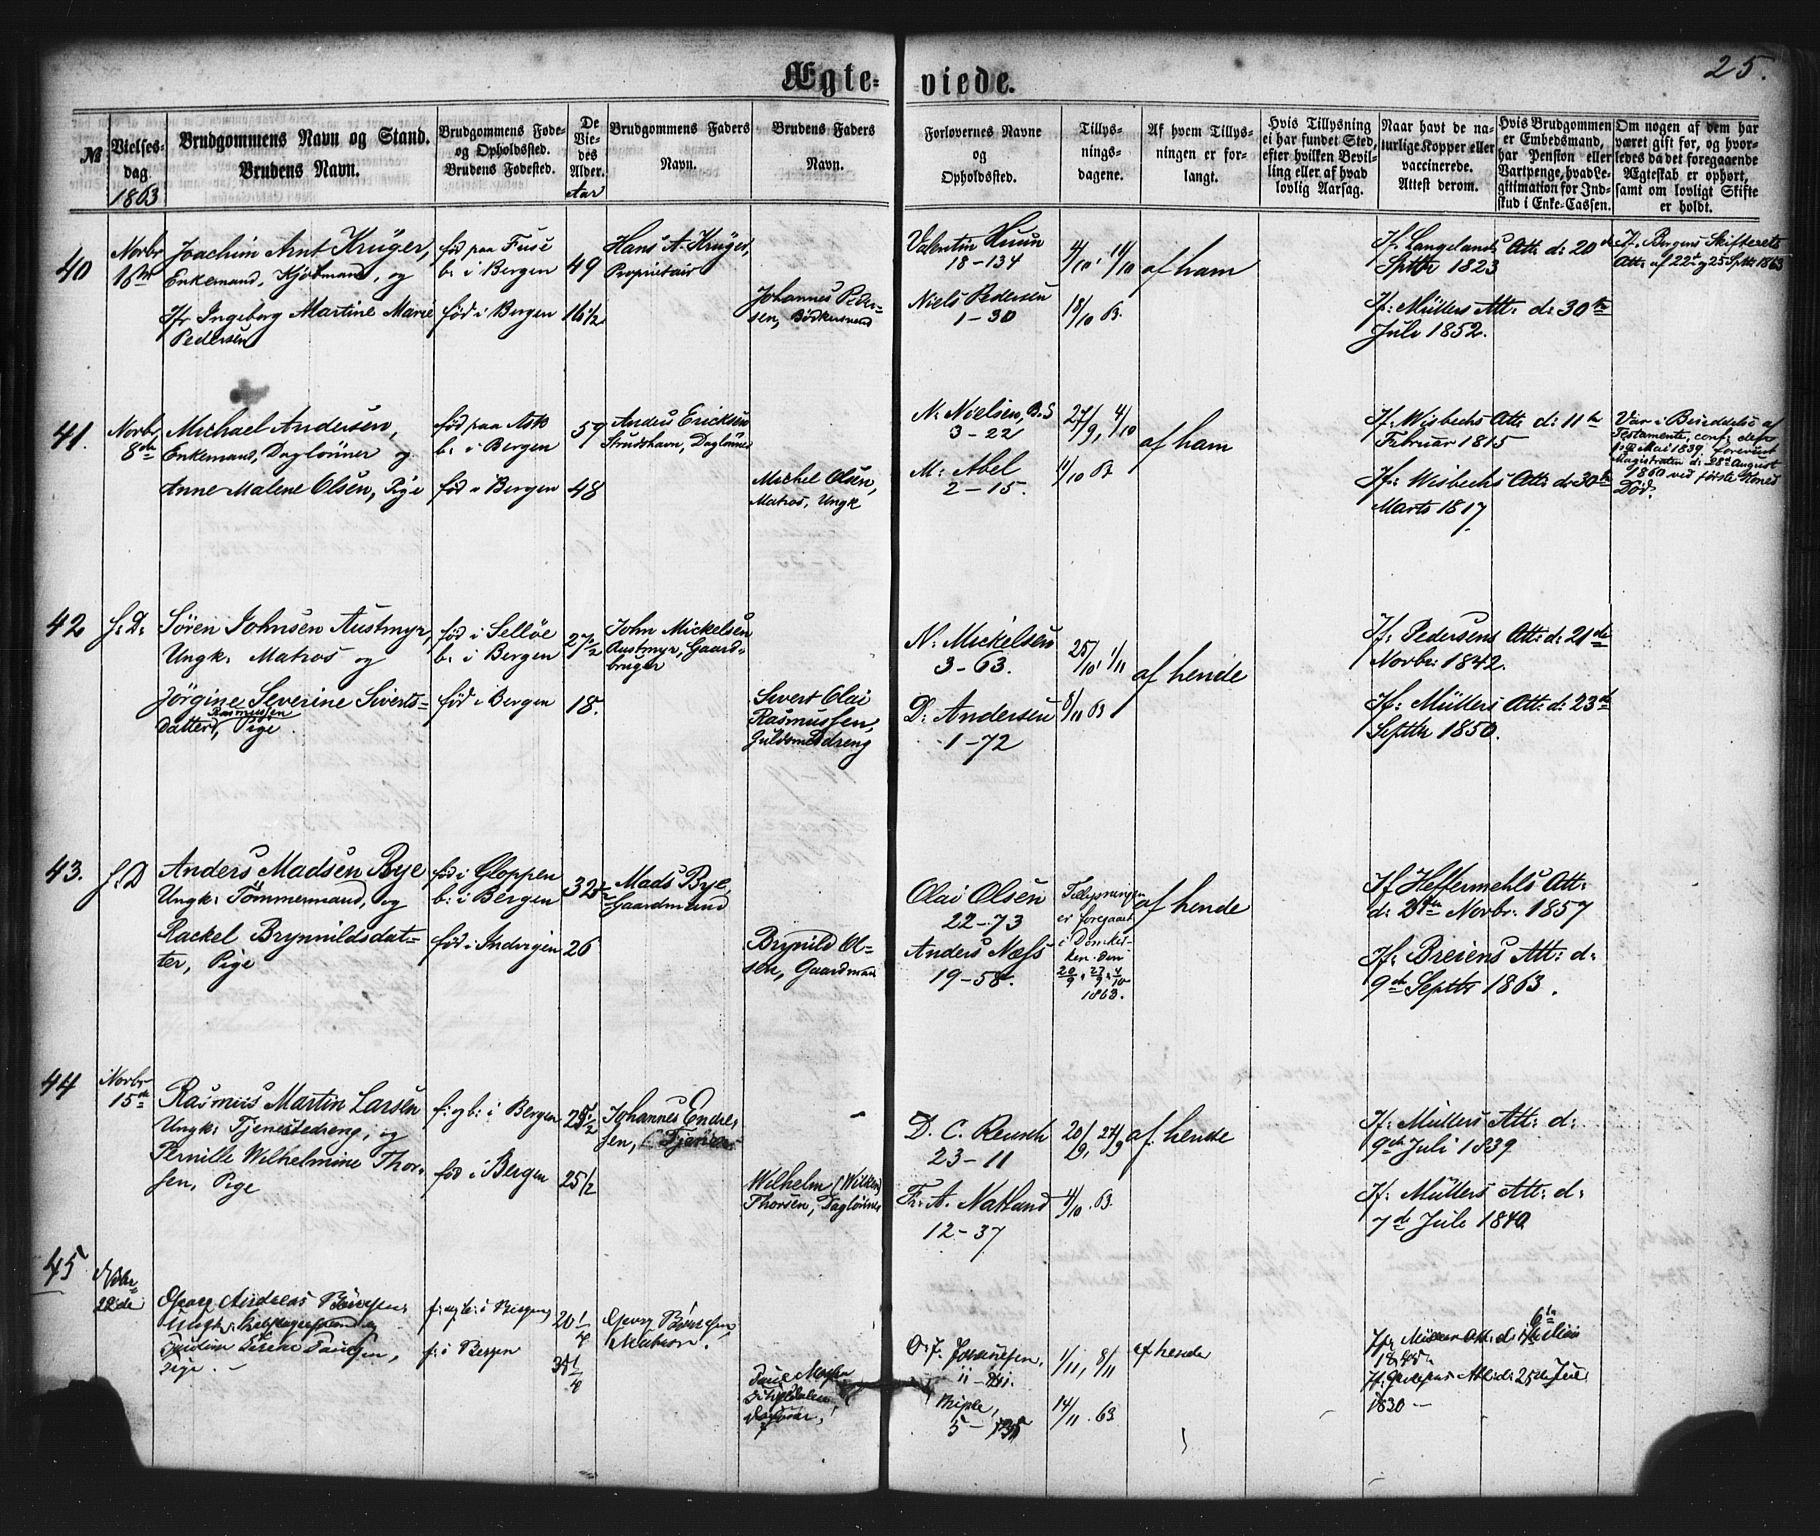 25.
Ægte- viede.
№
Vielses-
dag
1863
Brudgommens Navn og Stand.
Brudens Navn.
Brudgommens Føde-
og Opholdssted.
Brudens Fødested.
De
Vie-
des
Alder.
Aar
Brudgommens Faders
Navn.
Brudens Faders
Navn.
Forlovernes Navne
og
Opholdssted.
Tillys-
nings-
dagene.
Af hvem Tillys-
ningen er for-
langt.
Hvis Tillysning
ei har fundet Sted,
efter hvilken Bevil-
ling eller af hvad
lovlig Aarsag.
Naar havt de na-
turlige Kopper eller
vaccinerede.
Attest derom.
Hvis Brudgommen
er Embedsmand,
har Pension eller
Vartpenge, hvad Le-
gitimation for Ind-
skud i Enke-Cassen.
Om nogen af dem har
været gift før, og hvor-
ledes da det foregaaende
Ægteskab er ophørt,
samt om lovligt Skifte
er holdt.
40
Novbr
Joachim Arnt Krüger,
Enkemand, Kjøbmand, og
Jfr Ingeborg Martine Marie
Pedersen
fød paa Fuse
b: i Bergen
fød i Bergen
49
16 1/2
Hans A. Krüger,
Proprietair
Johannes Peder-
sen, Bødkersvend
Valentin
18-134
Niels Pedersen
1-30
4/10, 11/10
18/10 63.
af ham
Jf. Langelands Att: d: 20de
Septbr 1823
Jf: Müllers Att: d: 30te
Juli 1852.
Jf. Bergens Skifterets
Att: af 22de og 25 Septbr 1863
41.
Novbr
8de
Michael Andersen,
Enkemand, Dagløнner og
Anne Malene Olsen, Pige
fød paa Ask
b: i Bergen
fød i Bergen
59
48
Anders Ericksen
Strudshavn, Daglønner
Michel Olsen,
Matros, Ungk
N. Nielsen, B.S
3-22
M: Abel
2-15.
27/9, 4/10
11/10 63
af ham
Jf. Wisbechs Att: d: 11te
Februar 1815
Jf: Wisbechs Att: d: 30te
Marts 1817.
Var i Besiddelse af
Testamente, conf: dero
Mai 1839. forevist
Magistraten d: 28de August
1860 ved første Kones
Død.
42
f: D:
Søren Johnsen Austmyr,
Ungk: Matros og
Jörgine Severine Siverts-
Rasmussen
datter, Pige.
fød i Selløe
b: i Bergen
fød i Bergen
27 1/2
18.
John Mickelsen
Austmyr, Gaard-
bruger
Sivert Olai
Rasmussen,
Guldsmeddreng
N: Mickelsen
3-63.
D: Andersen
1-72
25/10, 1/11
8/11 63
af hende
Jf: Pedersens Att: d: 21de
Novbr: 1842.
Jf: Müllers Att: d: 23de
Septbr 1850.
43.
f: D
Anders Madsen Bye
Ungk: Tömmermand, og
Rackel Brynnildsdat-
ter, Pige
fød i Gloppen
b: i Bergen
fød i Indvigen
32 1/2
26
Mads Bye,
Gaardmand
Brynild Ol-
sen, Gaardmand
Olai Olsen
22-73
Anders Næss
19-58.
Tillysningen
er foregaaet
i Domkir-
ken den
20/9, 27/9, 4/10
1863.
af hende
Jf Heftermehls Att:
Novbr: 1857
Jf: Breiens Att: d:
9de Septbr 1863.
44
Novbr
15de
Rasmus Martin Larsen
Ungk: Tjenestedreng, og
Pernille Wilhelmine Thor-
sen, Pige
f: og b: i Bergen
fød i Bergen
25 1/2
25 1/2
Johannes Endre-
sen, Tjener
Wilhelm (Wilken)
Thorsen, Daglønner
D. C. Reusch
23-11
Fr: A. Natland
12-37
20/9, 27/9
4/10. 63.
af: hende
Jf: Müllers Att: d:
9de Juli 1839.
Jf: Müllers Att: d:
7de Juli 1840
45
Novbr
22de
Georg Andreas
Pige.
f: og b: i Bergen
f: i Bergen
20 1/4
Georg
Matros.
O. J. Johannesen,
11-
5-
1/11, 8/11
14/11. 63
af hende
Jf: Müllers Att: d: 6te
1830